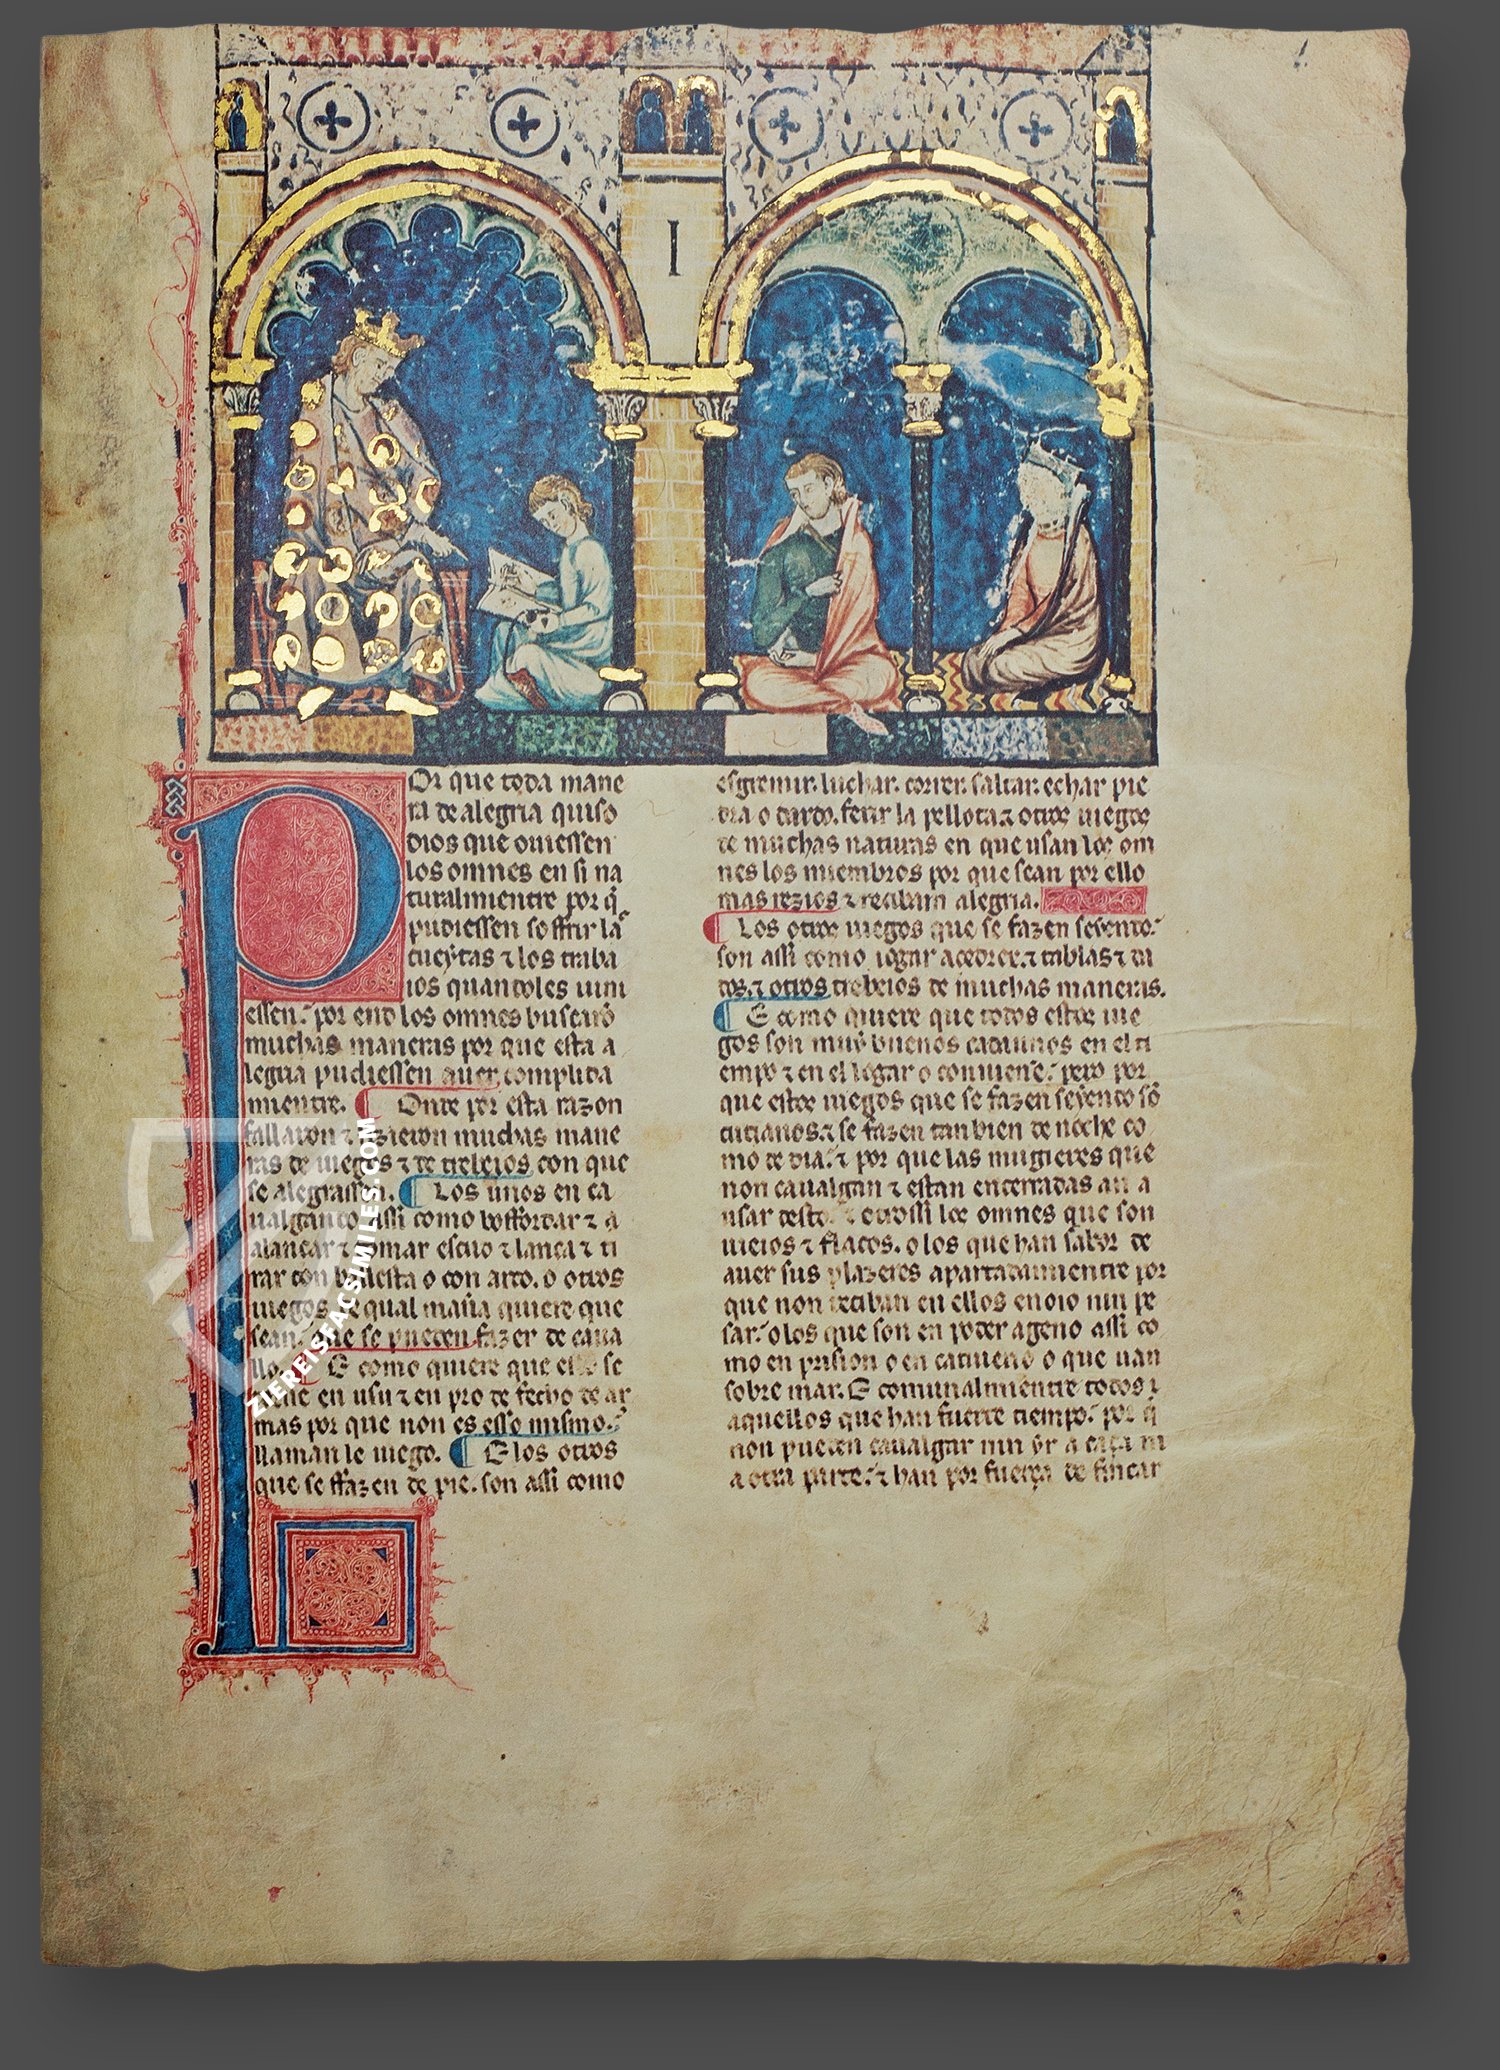 I
POr que toda mane
ra de alegria quiso
dios que ouiessen
los omnes en si na
turalmientre por q̃
pudiessen soffrir las
cueytas ⁊ los traba
ios quandoles uini
essen. por end los omnes buscarõ
muchas maneras por que esta a
legria pudiessen auer complida
mientre. ¶ Onde por esta razon
fallaron ⁊ fizieron muchas mane
ras de iuegos ⁊ de trebeios con que
se alegrassen. ¶ Los unos en ca
ualgando assi como bofordar ⁊ a
alançar ⁊ tomar escudo ⁊ lança ⁊ ti
rar con ballesta o con arco. o otros
iuegos de qual mańa quiere que
sean. que se pueden fazer de caua
llo. ¶ E como quiere que ello se
torne en usu ⁊ en pro de fecho de ar
mas por que non es esso mismo.
llaman le iuego. ¶ E los otros
que se ffazen de pie. son assi como
esgremir. luchar. correr. saltar. echar pie
dra o dardo. ferir la pellota ⁊ otros iuegos
de muchas naturas en que usan los om
nes los miembros por que sean por ello
mas rezios ⁊ reciban alegria.
¶ Los otros iuegos que se fazen seyendo.
son assi como iogar acedrex. ⁊ tablas ⁊ da
dos. ⁊ otros trebeios de muchas maneras.
¶ E como quiere que todos estos iue
gos son muy buenos cadaunos en el ti
empo ⁊ en el logar o conuiene. pero por
que estos iuegos que se fazen seyendo sõ
cutianos. ⁊ se fazen tan bien de noche co
mo de dia. ⁊ por que las mugieres que
non caualgan ⁊ estan encerradas an a
usar desto. ⁊ otrossi los omnes que son
uieios ⁊ flacos. o los que han sabor de
auer sus plazeres apartadamientre por
que non reciban en ellos enoio nin pe
sar. o los que son en poder ageno assi co
mo en prision o en catiuerio o que uan
sobre mar. E comunalmientre todos
aquellos que han fuerte tiempo. por q̃
non pueden caualgar nin yr a caça ni
a otra parte. ⁊ han por fuerça de fincar
ZIEREISFACSIMILES.COM